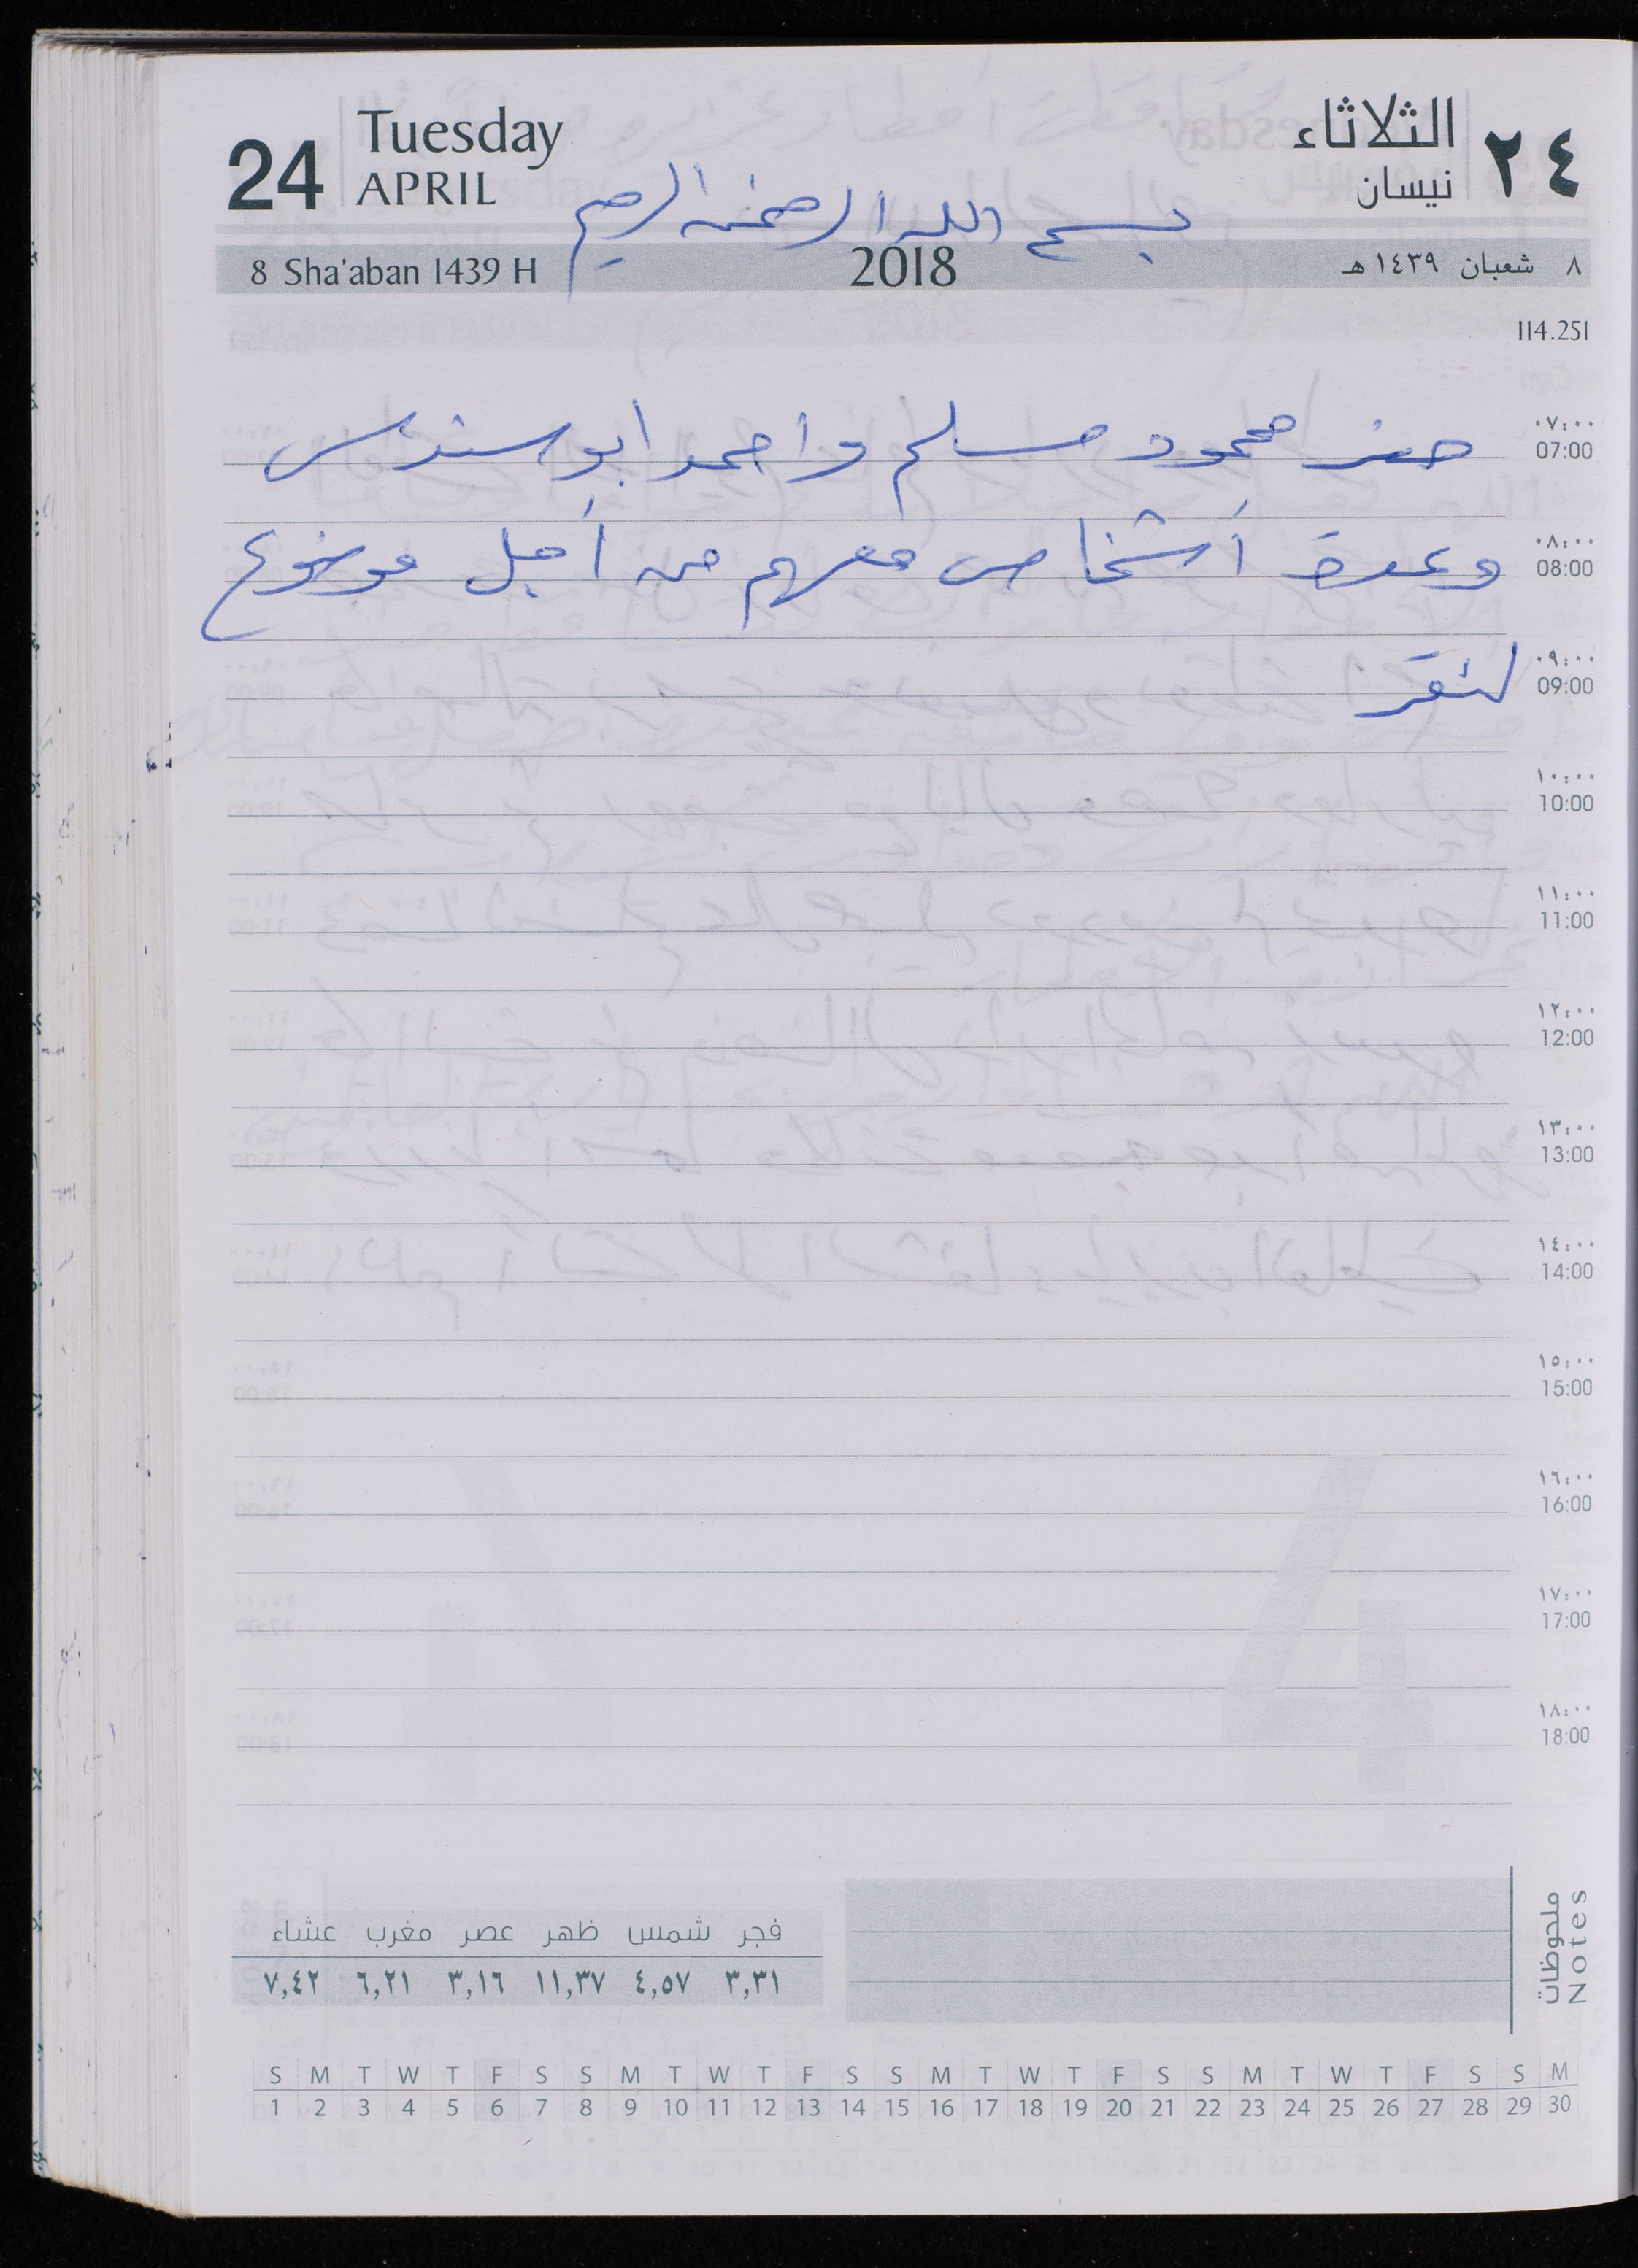 24 Tuesday APRIL الثلاثاء نيسان ٢٤
بسم الله الرحمن الرحيم
8 Sha'aban 1439 H 2018 ٨ شعبان ١٤٣٩ هـ
114.251
محمود مسلم واحمد ابو سندس
٠٧:٠٠ 07:00
وعدة أشخاص معهم من أجل موضوع
٠٨:٠٠ 08:00
٠٩:٠٠ 09:00
١٠:٠٠ 10:00
١١:٠٠ 11:00
١٢:٠٠ 12:00
١٣:٠٠ 13:00
١٤:٠٠ 14:00
١٥:٠٠ 15:00
١٦:٠٠ 16:00
١٧:٠٠ 17:00
١٨:٠٠ 18:00
ملحوظات Notes
فجر شمس ظهر عصر مغرب عشاء
٣,٣١ ٤,٥٧ ١١,٣٧ ٣,١٦ ٦,٢١ ٧,٤٢
S M T W T F S S M T W T F S S M T W T F S S M T W T F S S M
1 2 3 4 5 6 7 8 9 10 11 12 13 14 15 16 17 18 19 20 21 22 23 24 25 26 27 28 29 30